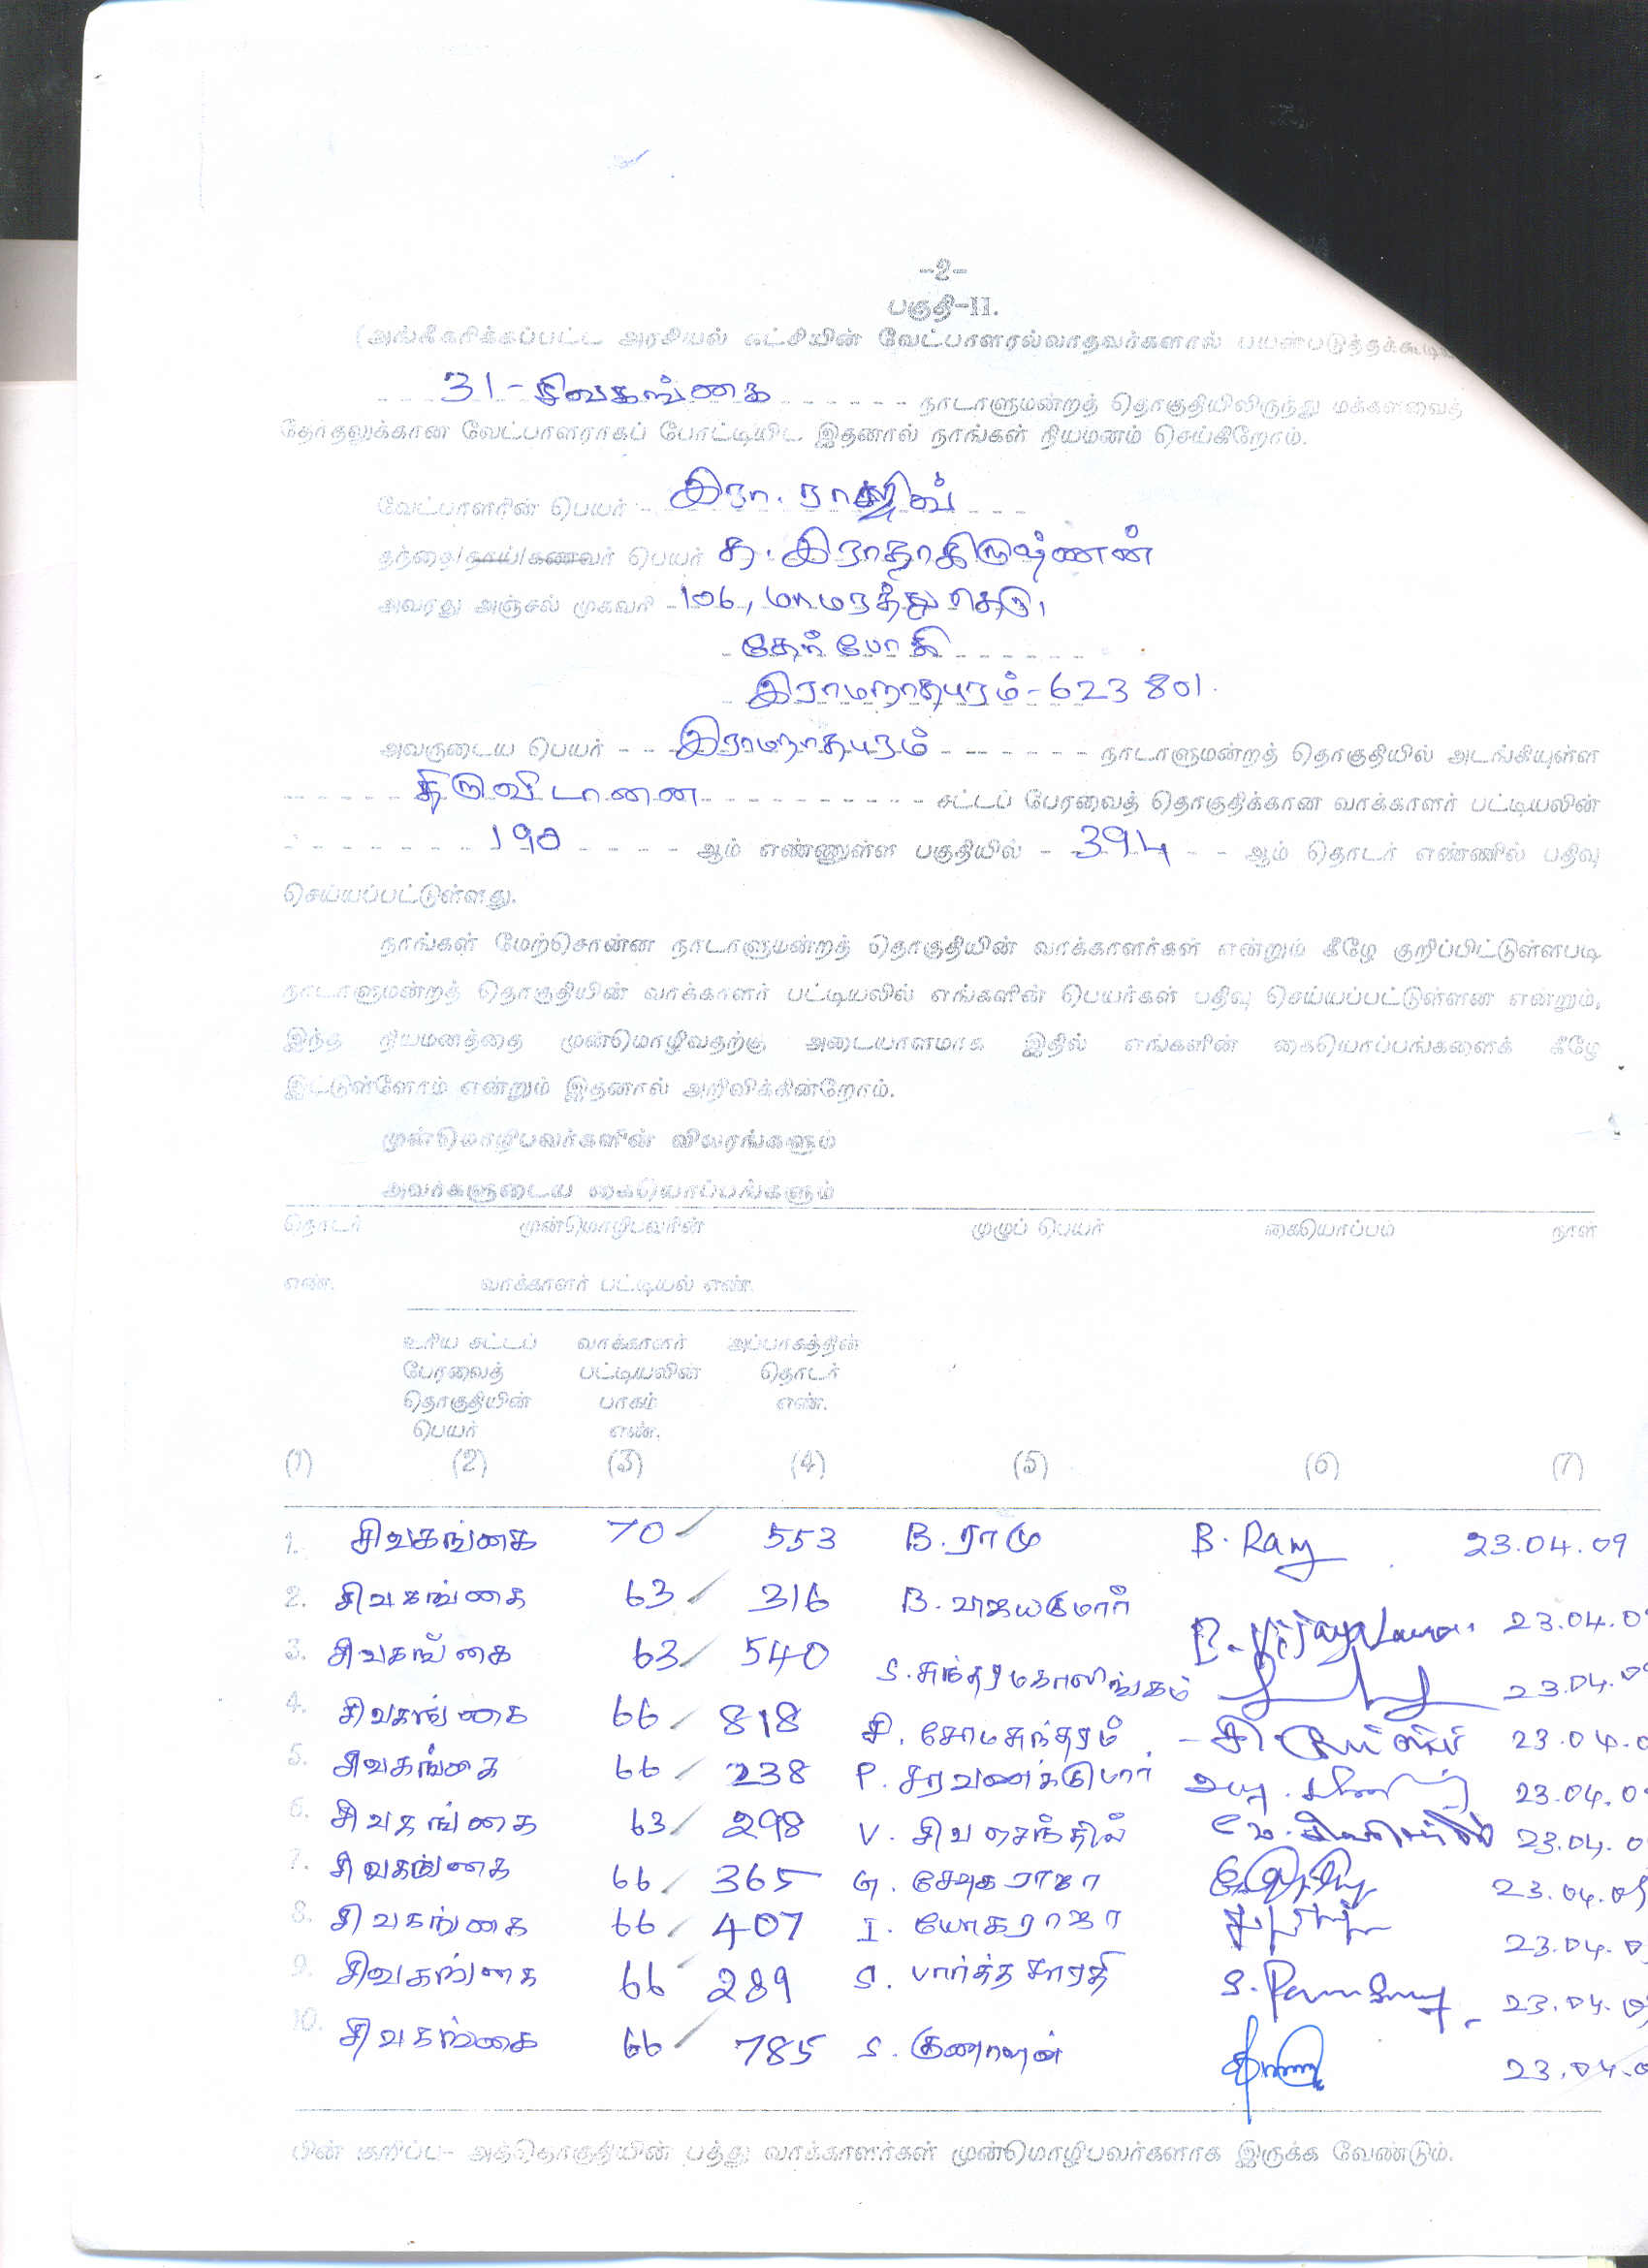 -2-
பகுதி-II.
(அங்கீகரிக்கப்பட்ட அரசியல் கட்சியின் வேட்பாளரல்லாதவர்களால் பயன்படுத்தக்கூடிய
31-சிவகங்கை நாடாளுமன்றத் தொகுதியிலிருந்து மக்களவைத்
தேர்தலுக்கான வேட்பாளராகப் போட்டியிட இதனால் நாங்கள் நியமனம் செய்கிறோம்.
வேட்பாளரின் பெயர் இரா.
தந்தை/தாய்/கணவர் பெயர் த. இராதாகிருஷ்ணன்
அவரது அஞ்சல் முகவரி 106, மாமரத்து தெரு,
தேர்போகி
இராமநாதபுரம்-623 801.
அவருடைய பெயர் இராமநாதபுரம் நாடாளுமன்றத் தொகுதியில் அடங்கியுள்ள
திருவிடானை சட்டப் பேரவைத் தொகுதிக்கான வாக்காளர் பட்டியலின்
190 ஆம் எண்ணுள்ள பகுதியில் 394 ஆம் தொடர் எண்ணில் பதிவு
செய்யப்பட்டுள்ளது.
நாங்கள் மேற்சொன்ன நாடாளுமன்றத் தொகுதியின் வாக்காளர்கள் என்றும் கீழே குறிப்பிட்டுள்ளபடி
நாடாளுமன்றத் தொகுதியின் வாக்காளர் பட்டியலில் எங்களின் பெயர்கள் பதிவு செய்யப்பட்டுள்ளன என்றும்,
இந்த நியமனத்தை முன்மொழிவதற்கு அடையாளமாக இதில் எங்களின் கையொப்பங்களைக் கீழே
இட்டுள்ளோம் என்றும் இதனால் அறிவிக்கின்றோம்.
முன்மொழிபவர்களின் விவரங்களும்
அவர்களுடைய கையொப்பங்களும்
தொடர் முன்மொழிபவரின் முழுப் பெயர் கையொப்பம் நாள்
எண். வாக்காளர் பட்டியல் எண்.
உரிய சட்டப் வாக்காளர் அப்பாகத்தின்
பேரவைத் பட்டியலின் தொடர்
தொகுதியின் பாகம் எண்.
பெயர் எண்.
(1) (2) (3) (4) (5) (6) (7)
1. சிவகங்கை 70 553 B. ராமு B. Ramu 23.04.09
2. சிவகங்கை 63 316 B. விஜயகுமார் B. Vijayakumar 23.04.0
3. சிவகங்கை 63 540 S. சுந்தரமகாலிங்கம் 23.04.0
4. சிவகங்கை 66 818 சி. சோமசுந்தரம் 23.04.0
5. சிவகங்கை 66 238 P. சரவணக்குமார் 23.04.0
6. சிவகங்கை 63 298 V. சிவசெந்தில் 23.04.0
7. சிவகங்கை 66 365 G. சேவுகராஜா 23.04.09
8. சிவகங்கை 66 407 I. யோகராஜா 23.04.0
9. சிவகங்கை 66 289 S. பார்த்தசாரதி 23.04.0
10. சிவகங்கை 66 785 S. குணாளன் 23.04.0
பின் குறிப்பு- அத்தொகுதியின் பத்து வாக்காளர்கள் முன்மொழிபவர்களாக இருக்க வேண்டும்.